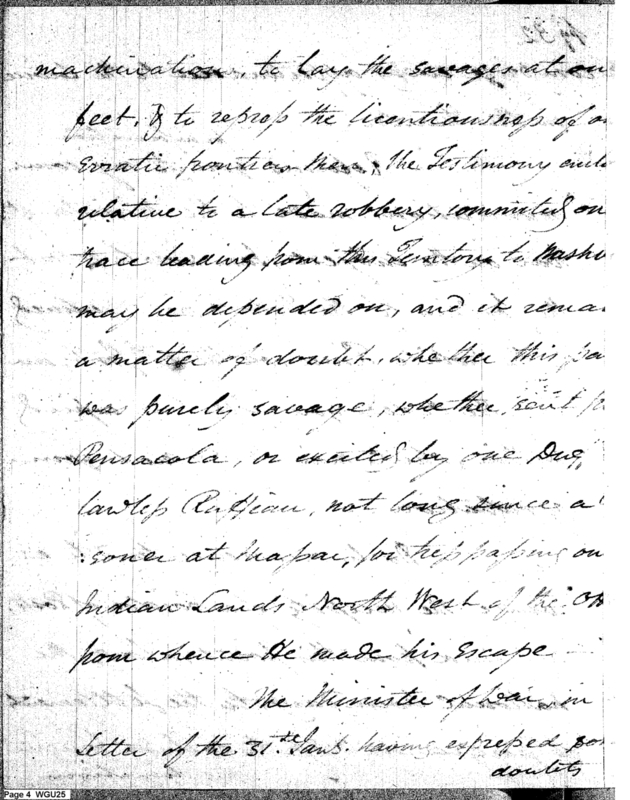 machination, to lay the savages at ou
feet, & to repress the licentiousness of o
Erratic frontier Men, the Testimony encl
relative to a late robbery, committed on
trace leading from this Territory to Nashv
may be depended on, and it remai
a matter of doubt, whether this pa
was purely savage, whether sent f
Pensacola, or excited by one
lawless Ruffian, not long since a
:soner at Massac, for trespassing on
Indian Lands North West of the Oh
from whence He made his Escape
The Minister of War, in
Letter of the 31st Jany. having expressed som
doubts
Page 4 WGU25